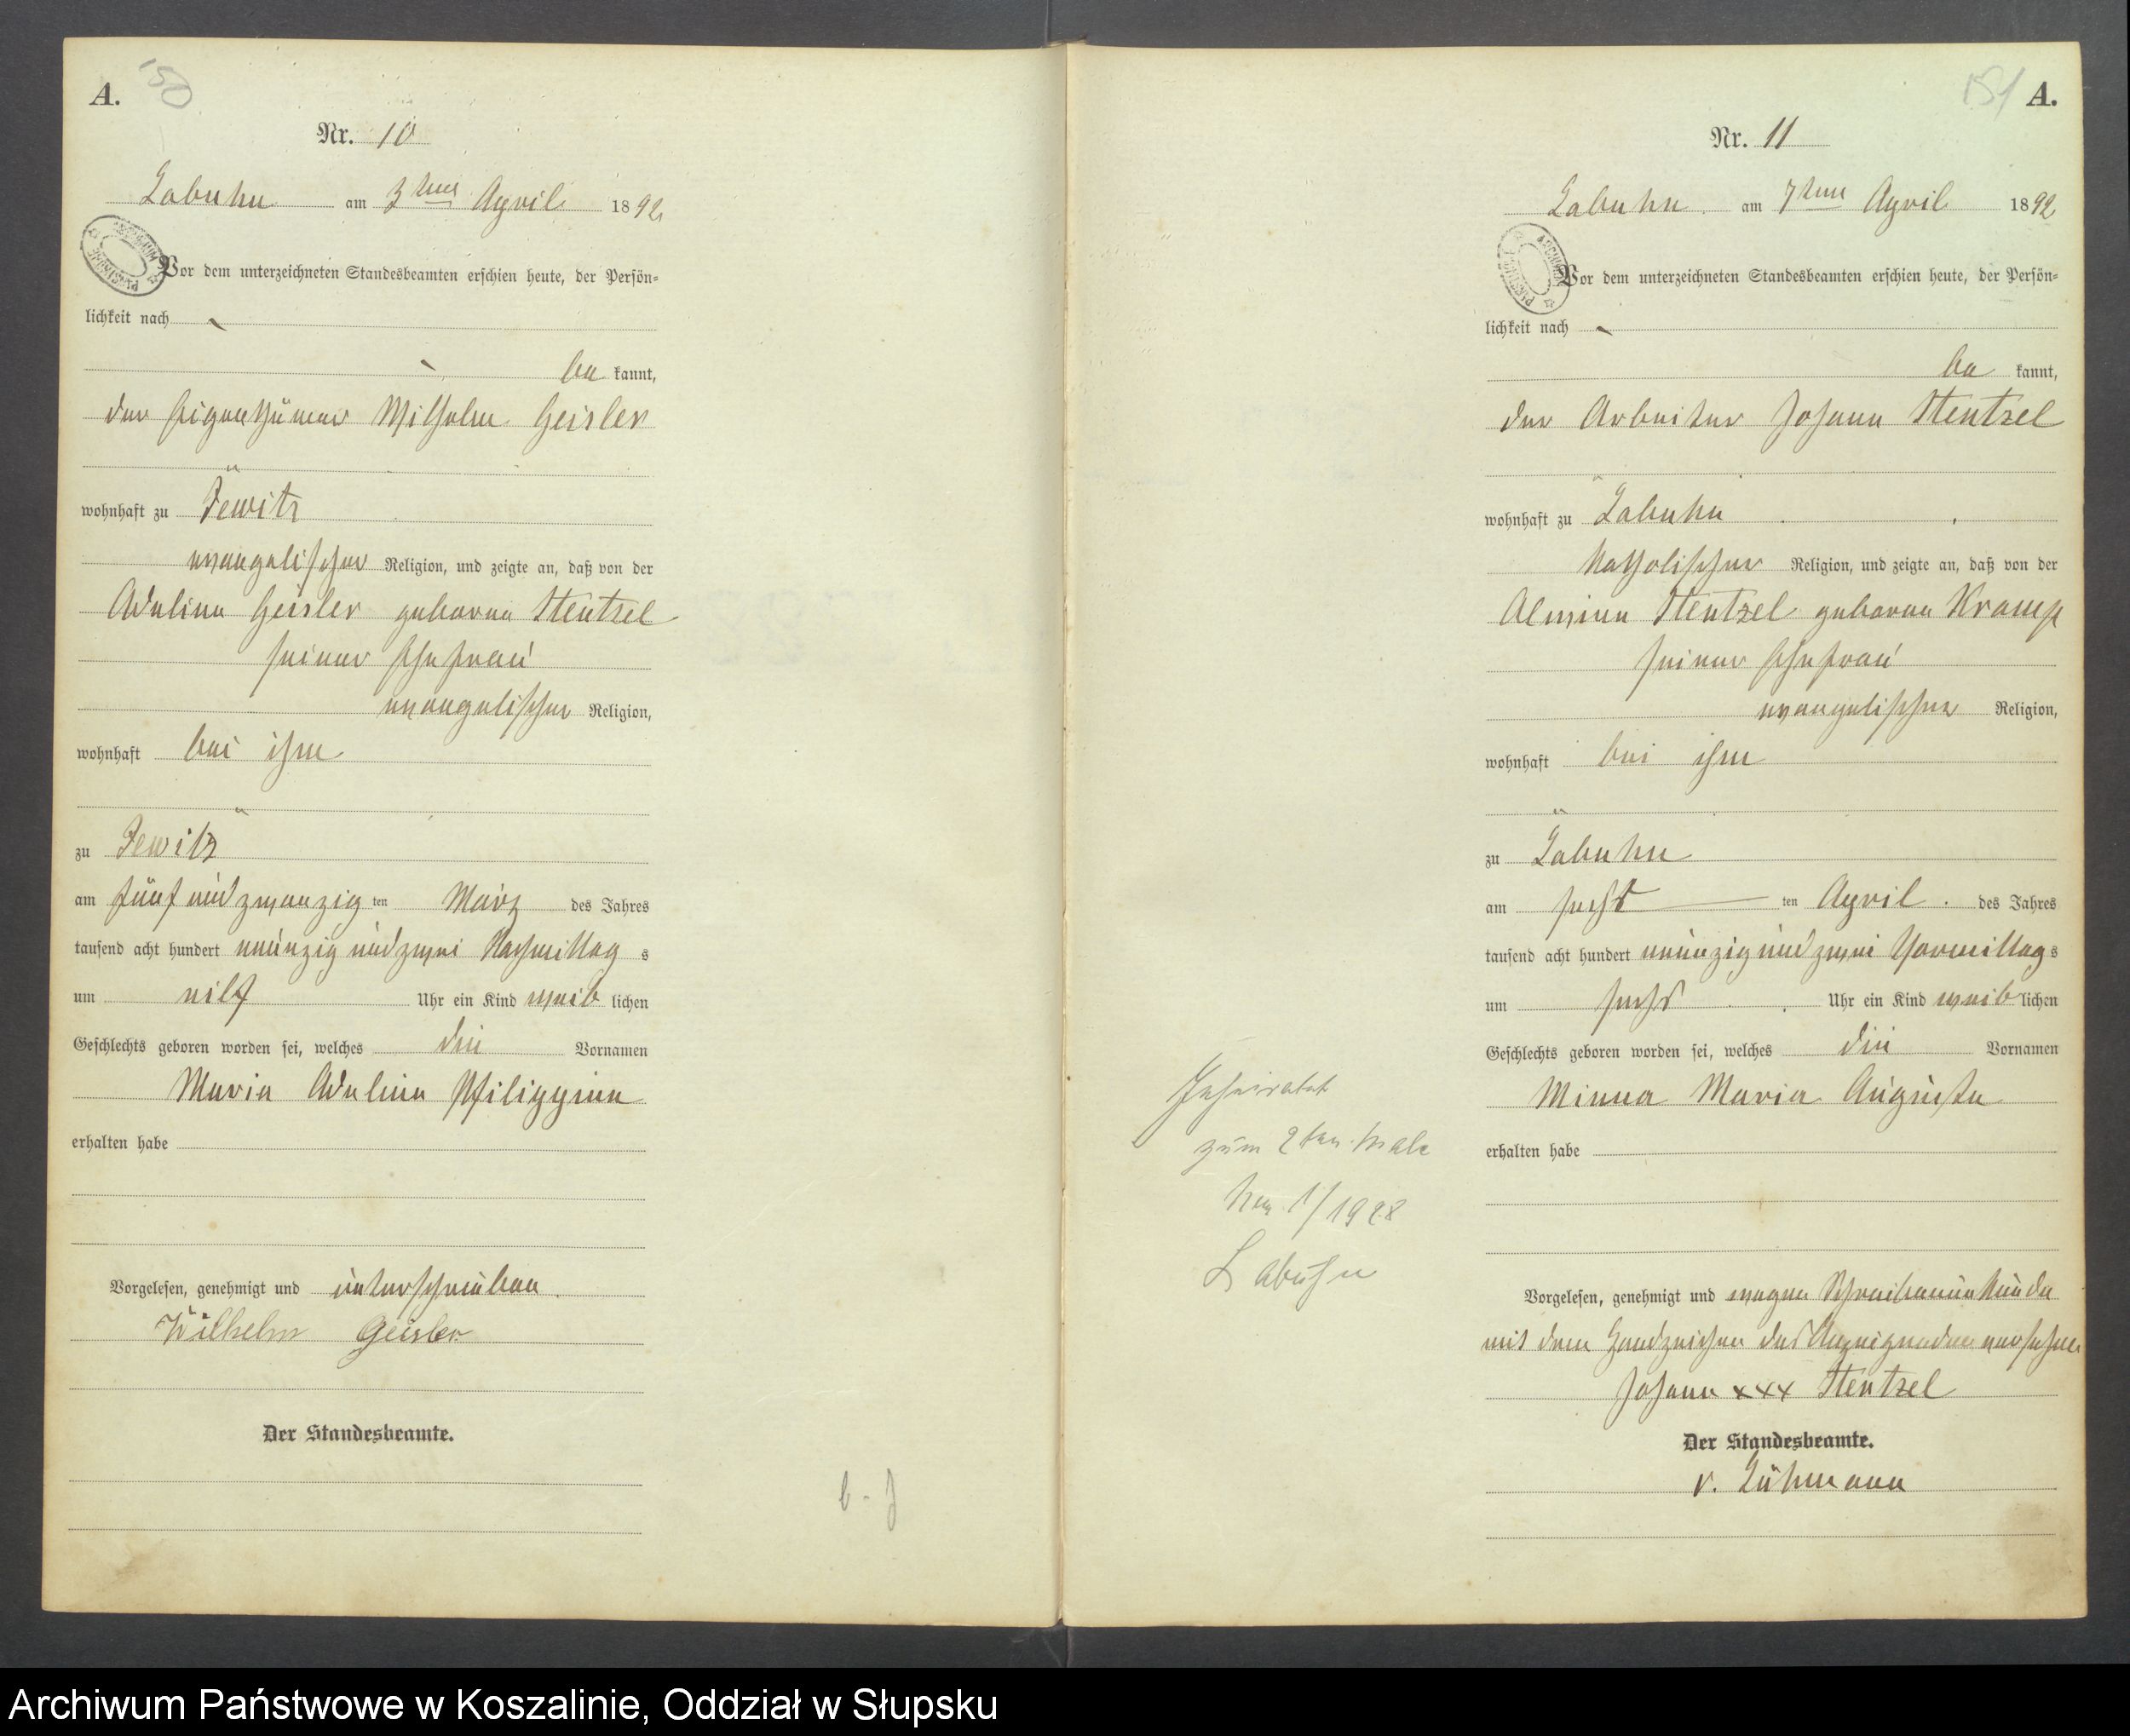 A. 150
Nr. 10
Labuhn am 3ten April 1892
Vor dem unterzeichneten Standesbeamten erschien heute, der Persön-
lichkeit nach
be kannt,
der Eigenthümer Wilhelm Geisler
wohnhaft zu Jewitz
evangelischer Religion, und zeigte an, daß von der
Adeline Geisler geborne Stentzel
seiner Ehefrau
evangelischer Religion,
wohnhaft bei ihm
zu Jewitz
am fünf und zwanzig ten März des Jahres
tausend acht hundert neunzig und zwei Nachmittag s
um elf Uhr ein Kind weib lichen
Geschlechts geboren worden sei, welches die Vornamen
Marie Adeline Philippine
erhalten habe
Vorgelesen, genehmigt und unterschrieben
Wilhelm Geisler
Der Standesbeamte.
151 A.
Nr. 11
Labuhn am 7ten April 1892
Vor dem unterzeichneten Standesbeamten erschien heute, der Persön-
lichkeit nach
be kannt,
der Arbeiter Johann Stentzel
wohnhaft zu Labuhn
katholischer Religion, und zeigte an, daß von der
Stentzel geborne Kramp
seiner Ehefrau
evangelischer Religion,
wohnhaft bei ihm
zu Labuhn
am sechs ten April des Jahres
tausend acht hundert neunzig und zwei Vormittag s
um sechs Uhr ein Kind weib lichen
Geschlechts geboren worden sei, welches die Vornamen
Minna Marie Auguste
erhalten habe
Geheiratet
zum 2ten. Male
1/1928
Labuhn
Vorgelesen, genehmigt und wegen Schreibensunkunde
mit dem Handzeichen des Anzeigenden versehen
Johann xxx Stentzel
Der Standesbeamte.
v. Lühmann
Archiwum Państwowe w Koszalinie, Oddział w Słupsku